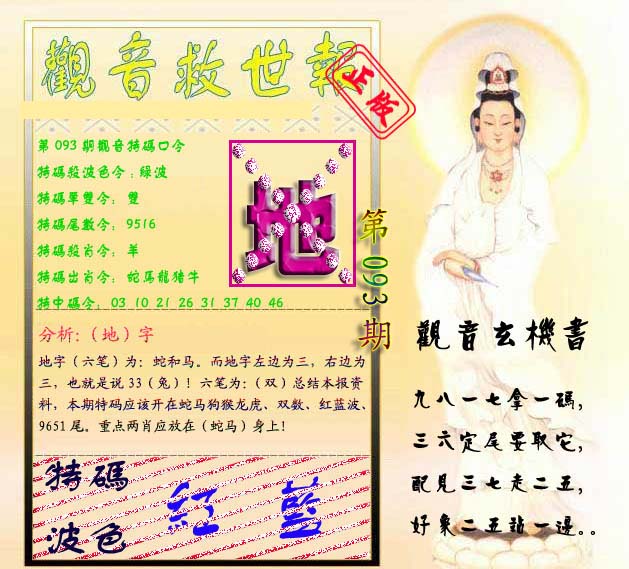 觀音救世報
正版
第093期觀音特碼口令
特碼殺波色令:綠波
特碼單雙令: 雙
特碼尾數令: 9516
特碼殺肖令: 羊
特碼出肖令: 蛇馬龍猪牛
特中碼令: 03 10 21 26 31 37 40 46
地
第093期
分析:（地）字
地字（六笔）为：蛇和马。而地字左边为三，右边为
三，也就是说 33（兔）！六笔为：（双）总结本报资
料，本期特码应该开在蛇马狗猴龙虎、双数、红蓝波、
9651 尾。重点两肖应放在（蛇马）身上！
特碼
波色
紅 藍
觀音玄機書
九八一七拿一碼,
三六定尾要取它,
配見三七走二五,
好象二五站一邊。。